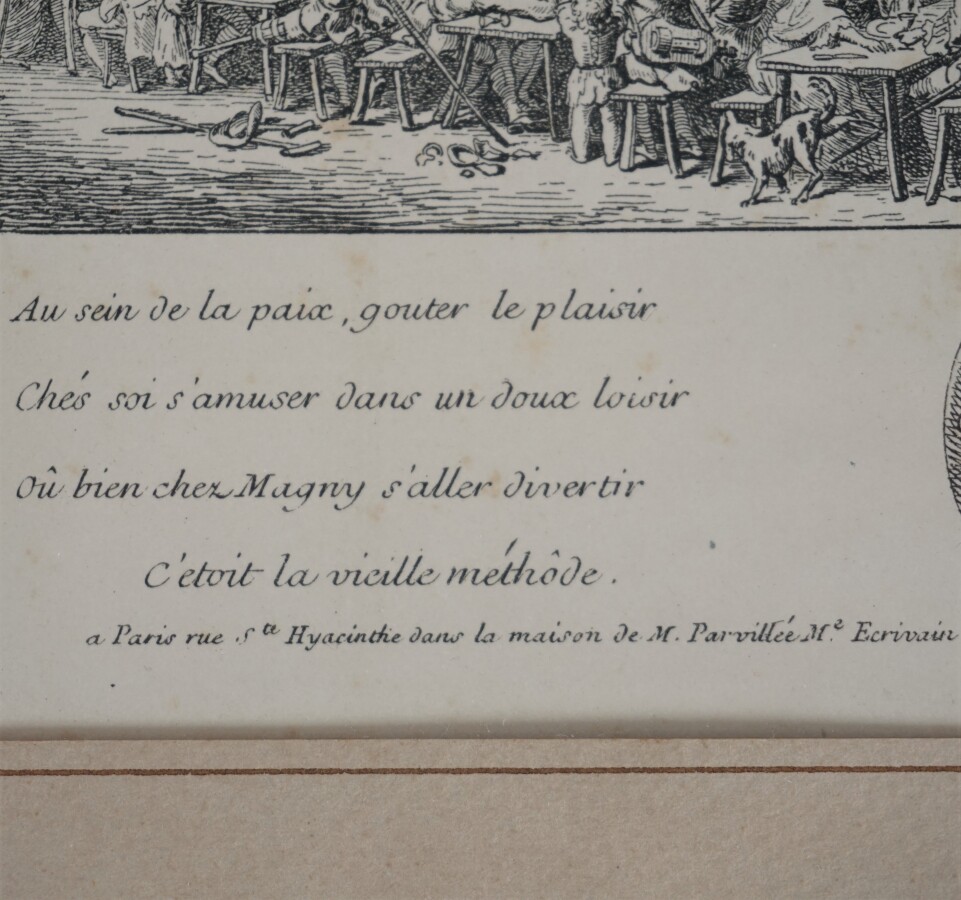 Au sein de la paix, gouter le plaisir
Chés soi s'amuser dans un doux loisir
Oû bien chez Magny s'aller divertir
C'étoit la vieille méthôde.
a Paris rue Ste Hyacinthe dans la maison de M. Parvillée M.e Ecrivain